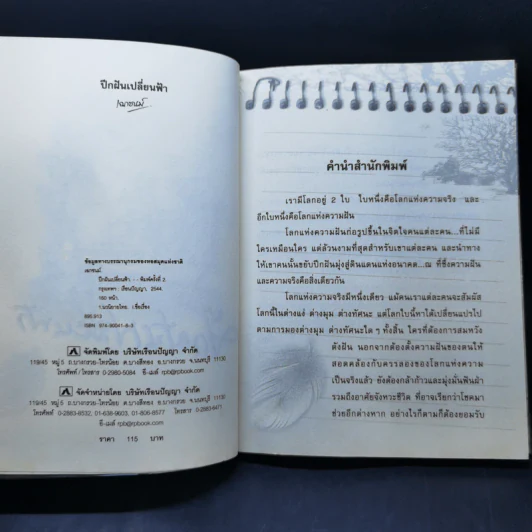 ปีกฝันเปลี่ยนฟ้า
ข้อมูลทางบรรณานุกรมของหอสมุดแห่งชาติ
เฌาชนม์
ปีกฝันเปลี่ยนฟ้า.- -พิมพ์ครั้งที่ 2
กรุงเทพฯ : เรียนปัญญา, 2544.
160 หน้า.
1.นวนิยายไทย. I.ชื่อเรื่อง
895.913
ISBN 974-90041-8-5
จัดพิมพ์โดย บริษัทเรียนปัญญา จำกัด
119/45 หมู่ 5 ถ.บางกรวย-ไทรน้อย ต.บางสีทอง อ.บางกรวย จ.นนทบุรี 11130
โทรศัพท์ / โทรสาร 0-2980-5084 อี-เมล์ rpb@rpbook.com
จัดจำหน่ายโดย บริษัทเรียนปัญญา จำกัด
119/45 หมู่ 5 ถ.บางกรวย-ไทรน้อย ต.บางสีทอง อ.บางกรวย จ.นนทบุรี 11130
โทรศัพท์ 0-2883-6532, 01-636-9603, 01-806-8577 โทรสาร 0-2883-6471
อี-เมล์ rpb@rpbook.com
ราคา 115 บาท
คำนำสำนักพิมพ์
เรามีโลกอยู่ 2 ใบ ใบหนึ่งคือโลกแห่งความจริง และ
อีกใบหนึ่งคือโลกแห่งความฝัน
โลกแห่งความฝันก่อรูปขึ้นในจิตใจคนแต่ละคน...ที่ไม่มี
ใครเหมือนใคร แต่ล้วนงามที่สุดสำหรับเขาแต่ละคน และนำทาง
ให้เขาคนนั้นขยับปีกฝันมุ่งสู่ดินแดนแห่งอนาคต...ณ ที่ซึ่งความฝัน
และความจริงคือสิ่งเดียวกัน
โลกแห่งความจริงมีหนึ่งเดียว แม้คนเราแต่ละคนจะสัมผัส
โลกนี้ในต่างแง่ ต่างมุม ต่างทัศนะ แต่โลกใบนี้หาได้เปลี่ยนแปรไป
ตามการมองต่างมุม ต่างทัศนะใด ๆ ทั้งสิ้น ใครที่ต้องการสมหวัง
ดังฝัน นอกจากต้องตั้งความฝันของตนให้
สอดคล้องกับครรลองของโลกแห่งความ
เป็นจริงแล้ว ยังต้องกล้าก้าวและมุ่งมั่นฟันฝ่า
รวมถึงอาศัยจังหวะชีวิต ที่อาจเรียกว่าโชคมา
ช่วยอีกต่างหาก อย่างไรก็ตามก็ต้องยอมรับ